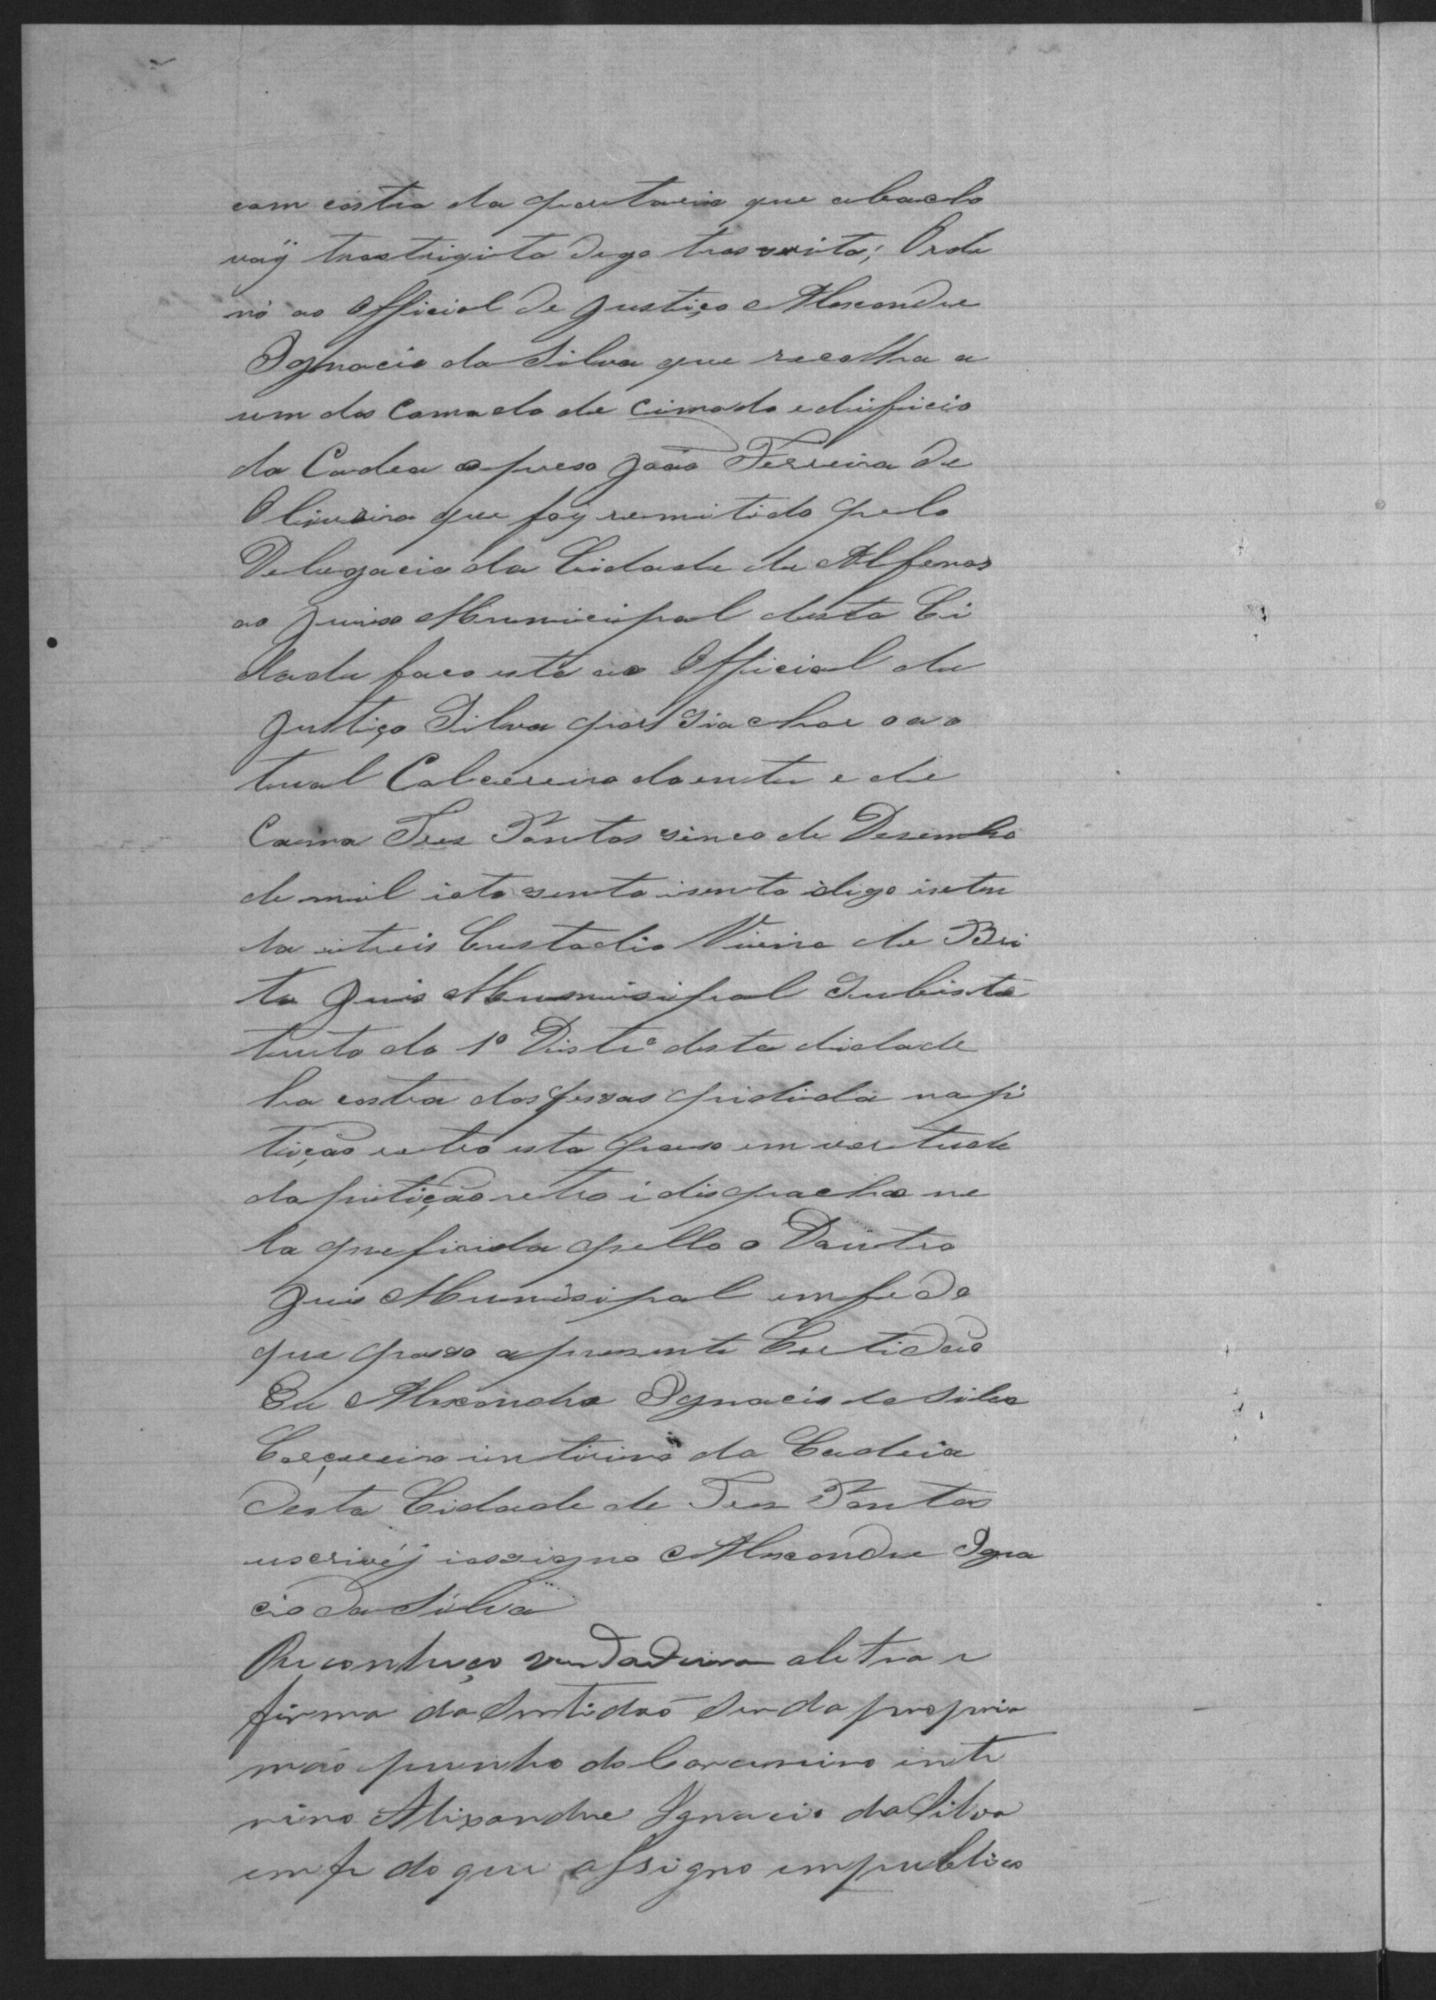 com costra da portaria que abacho
vaÿ trastrigita digo trascrita; Orde
nó ao Official de Justiça Alexandre
Ignacio da Silva que recolha a
um dos Comado de cima do edificio
da Cadea o preso João Ferreira de
Oliveira que foy remitido pela
Delegacia da Cidade de Alfenas
ao Juiso Municipal desta Ci
dade faco esta ao Official de
Justiça Silva por si achar o a
tual Calcereiro doente e de
Cama Tres Pontas sinco de Desembro
de mil ioto sento isento idigo ioten
ta itreis Custodio Vieira de Bri
to Juis Munisipal Subista
tuto do 1º Distrº desta Cidade
hera costra dos pesoas pididá na pi
tição retro esta preso em vertude
da pitição retro i dispacho ne
la preficida pello o Doutro
Juis Munisipal em fe do
que passo a presente Certidaõ
Eu Alexandre Ignacio da Silva
Carçareiro intirino da Cadeia
desta Cidade de Tres Pontas
iescrivéj iassigno Alexandre Igna
cio da Silva
Reconheço verdadeira aletra e
firma da Sertidaõ Ser da propria
maõ punho do Carcereiro inte
rino Alixandre Ignacio da Silva
em fe do que assigno em publico